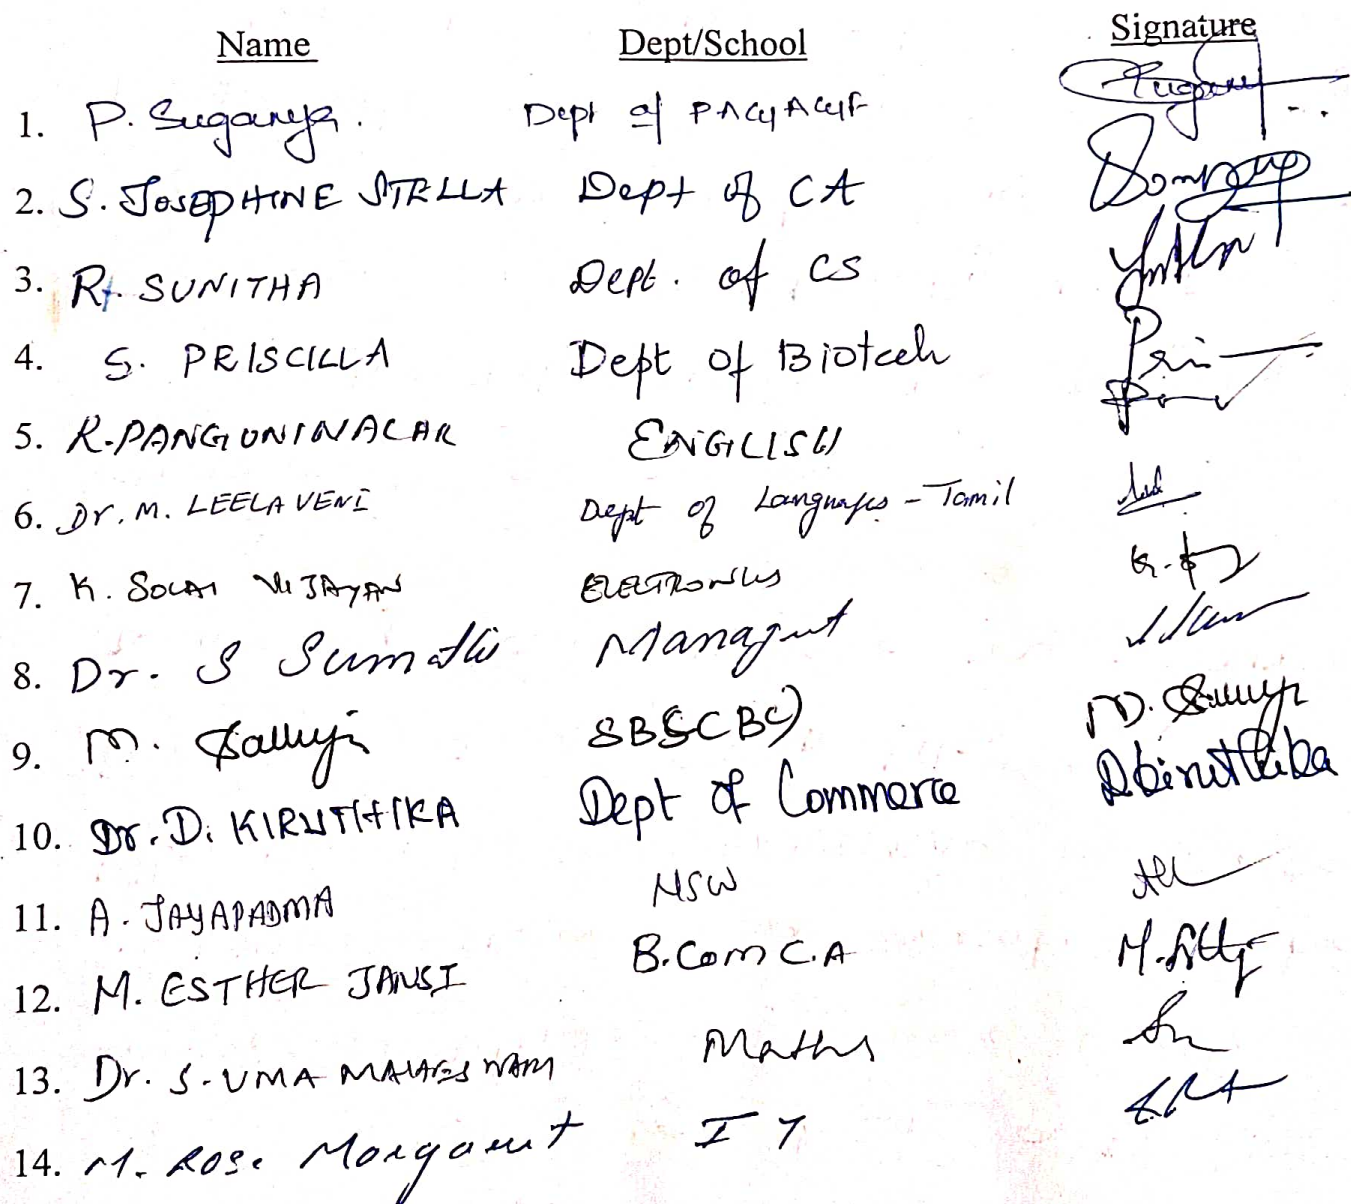 Name Dept/School Signature
1. P. Suganya. Dept of PACy ACyF
2. S. JOSEPHINE STELLA Dept of CA
3. R. SUNITHA Dept. of CS
4. S. PRISCILLA Dept of Biotech
5. R. PANGUNINALAR ENGLISH
6. Dr. M. LEELAVENI Dept of Languages - Tamil
7. K. SOLAI VIJAYAN ELECTRONICS
8. Dr. S Sumathi
9. M.
10. Dr. D. KIRUTHIKA Dept of Commerce D. Kiruthika
11. A. JAYAPADMA MSW
12. M. ESTHER JANSI B.Com C.A
13. Dr. S. UMA MAHARESWARI Maths
14. M. Rose Margaret IT